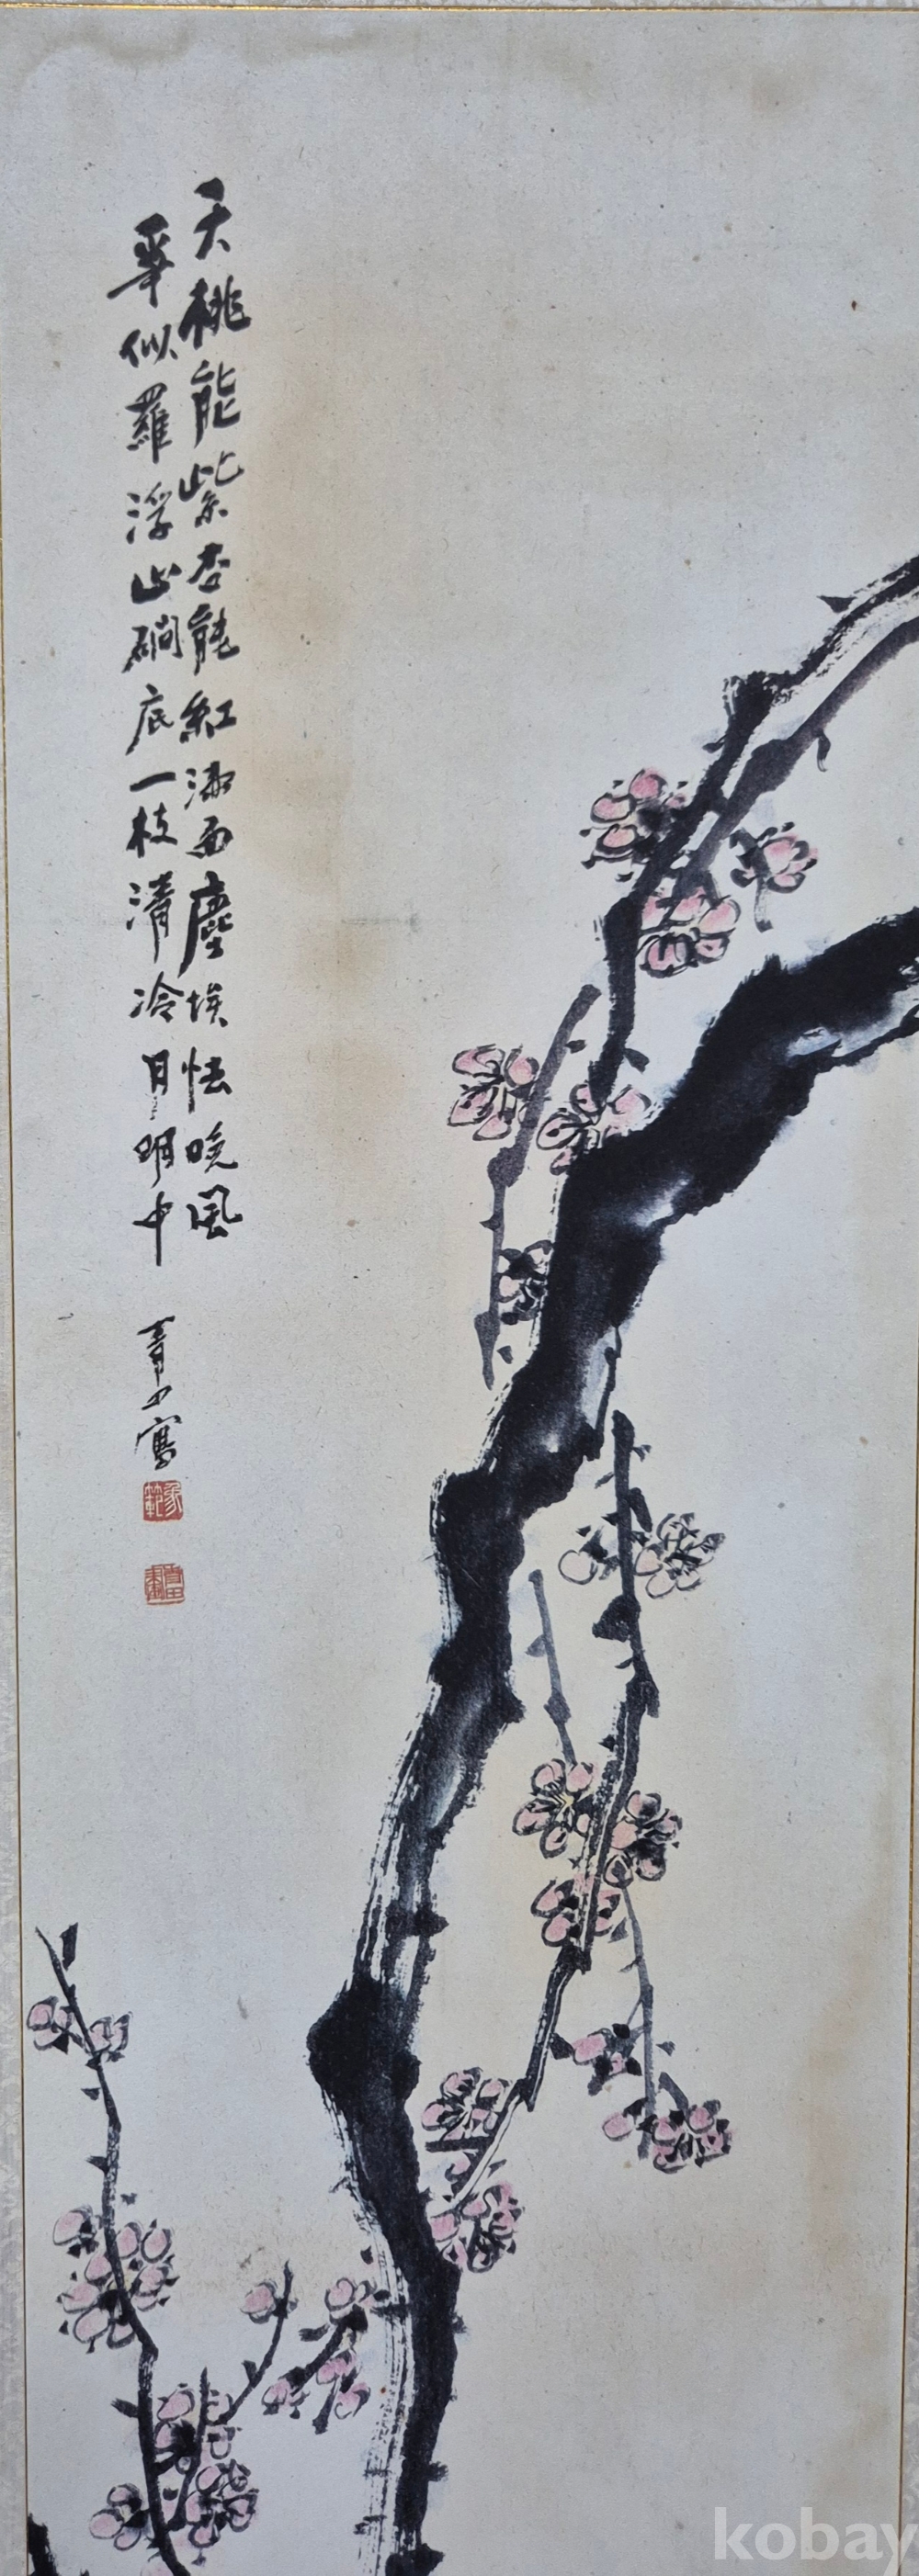 夭桃能紫杏能紅滿面塵埃怯晚風
爭似羅浮山磵底一枝清冷月明中
青田寫
象範
kobay